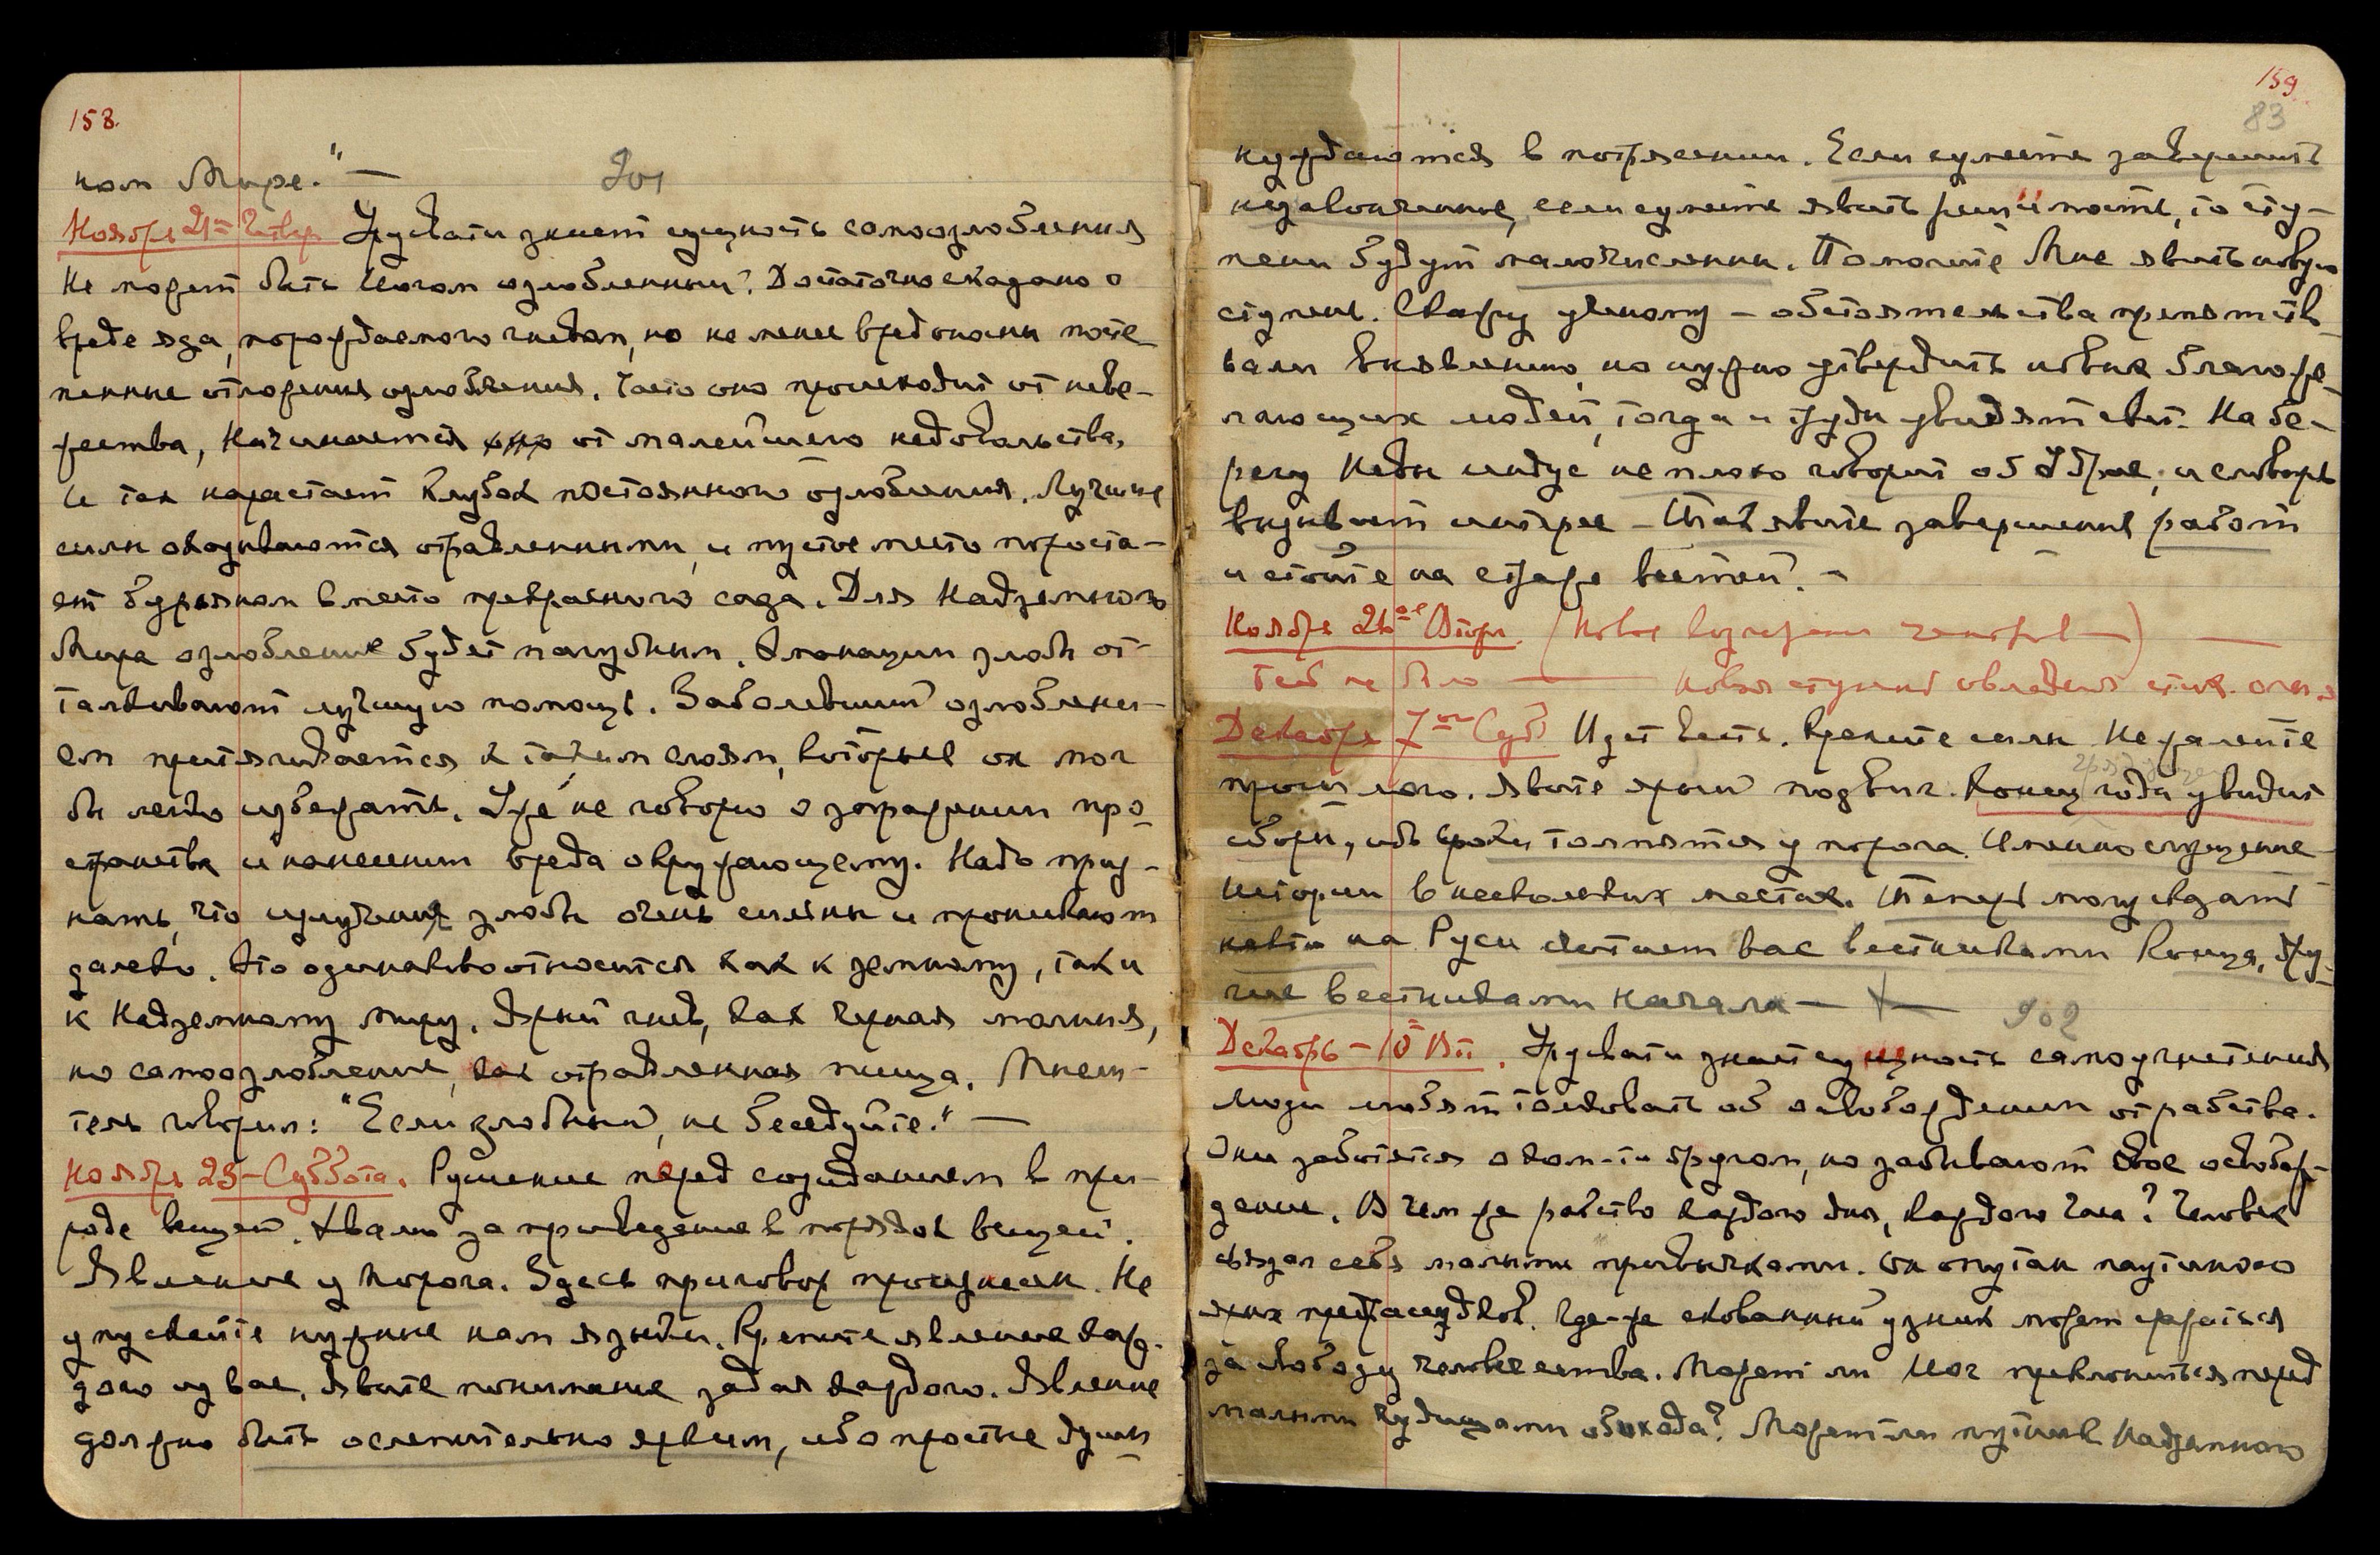 158.
ном Мире." —
901
Ноябрь 21 – Четвер Урусвати знает сущность самоозлобления
Не может быть Йогом озлобленный. Достаточно сказано о
вреде яда, порождаемого гневом, но не менее вредоносны посте-
пенные отложения озлобления. Часто оно происходит от неве-
жества, Начинается от малейшего недовольства,
И так нарастает клубок постоянного озлобления. Лучшие
силы оказываются отравленными, и пустое место пораста-
ет бурьяном вместо прекрасного сада. Для Надземного
Мира озлобление будет пагубным. Эманации злобы от-
талкивают лучшую помощь. Заболевший озлоблени-
ем притягивается к таким слоям, которые он мог
бы легко избежать. Уже не говорю о заражении про-
странства и нанесении вреда окружающему. Надо приз-
нать, что излучения злобы очень сильны и проникают
далеко. Это одинаково относится как к земному, так и
к Надземному миру. Ярый гнев, как черная молния,
но самоозлобление, как отравленная пища. Мысли-
тель говорил: "Если злобный, не беседуйте." —
Ноябрь 23 – Суббота. Рушение перед созиданием в при-
роде вещей. Хвалю за приведение в порядок вещей.
Явление у порога. Здесь приговор произнесен. Не
упускайте нужные нам языки. Крепите явление каж-
дого из вас, явите понимание задач каждого. Явление
должно быть ослепительно ярким, ибо простые души
159
83
нуждаются в потрясении. Если сумеете завершить
незаконченные, если сумеете явить решимость, то сту-
пени будут малочисленны. Помогите Мне явить новую
ступень. Скажу ученому – обстоятельства препятство-
вали выявлению, но нужно утвердить новых благоже-
лающих людей, тогда и труды увидят свет. На бе-
регу индус не плохо говорит об Уруе; и словарь
вызывает интерес – Так явите завершение работ
и стойте на страже вестей. –
Ноября 26ое Вторн. (Новое возгорание центров —) —
Бесед не было — новая ступень овладения стих. огня
Декабря 7ое Суб. Идет весть. Крепите силы Не жалейте
грядущее
прошлого. Явите ярый подвиг. Конец года увидит
сборы, ибо сроки толпятся у порога. Именно сгущение
Истории в нескольких местах. Теперь могу сказать
некто на Руси считает вас вестниками Конца, дру-
гие вестниками Начала — —
902
Декабрь – 10 Вт. Урусвати знает сущность самоугнетения
Люди любят толковать об освобождении от рабства.
Они заботятся о ком-то другом, но забывают свое освобож-
дение. В чем же рабство каждого дня, каждого часа? Человек
связал себя малыми привычками. Он опутан паутиною
ярых предрассудков. Где-же скованный узник может сражаться
за свободу человечества. Может ли Йог преклониться перед
малыми чудищами обихода? Может ли путник Надземного